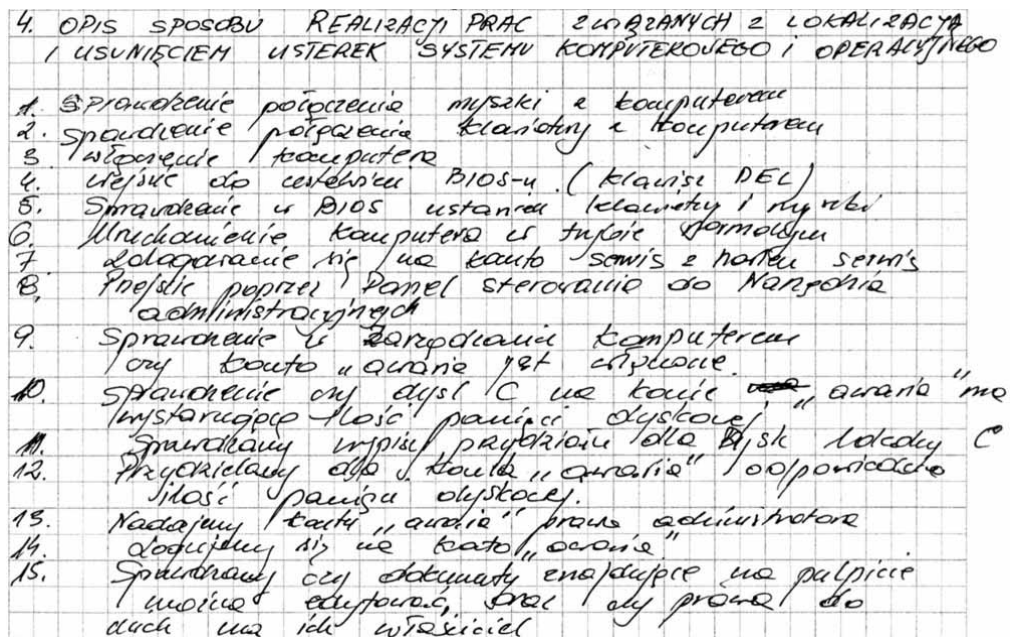 4. OPIS SPOSOBU REALIZACJI PRAC ZWIĄZANYCH Z LOKALIZACJĄ
I USUNIĘCIEM USTEREK SYSTEMU KOMPUTEROWEGO i OPERACYJNEGO
1. Sprawdzenie połączenia myszki z komputerem
2. Sprawdzenie połączenia klawiatury z komputerem
3. Włączenie komputera
4. Wejście do ustawień BIOS-u. (klawisz DEL)
5. Sprawdzenie w BIOS ustawień klawiatury i myszki
6. Uruchomienie komputera w trybie normalnym
7. Zalogowanie się na konto serwis z hasłem serwis
8. Przejście poprzez Panel sterowania do Narzędzia
administracyjnych
9. Sprawdzenie w zarządzaniu komputerem
czy konto "awaria jest włączone.
10. Sprawdzenie czy dysk C na koncie "awaria" ma
wystarczającą ilość pamięci dyskowej
11. Sprawdzamy wpisy przydziału dla Dysk lokalny C
12. Przydzielamy dla konta "awaria" odpowiednią
ilość pamięci dyskowej.
13. Nadajemy konty "awaria" prawa administratora
14. Logujemy się na konto "awaria"
15. Sprawdzamy czy dokumenty znajdujące na pulpicie
można edytować, oraz czy prawa do
ich właściciel